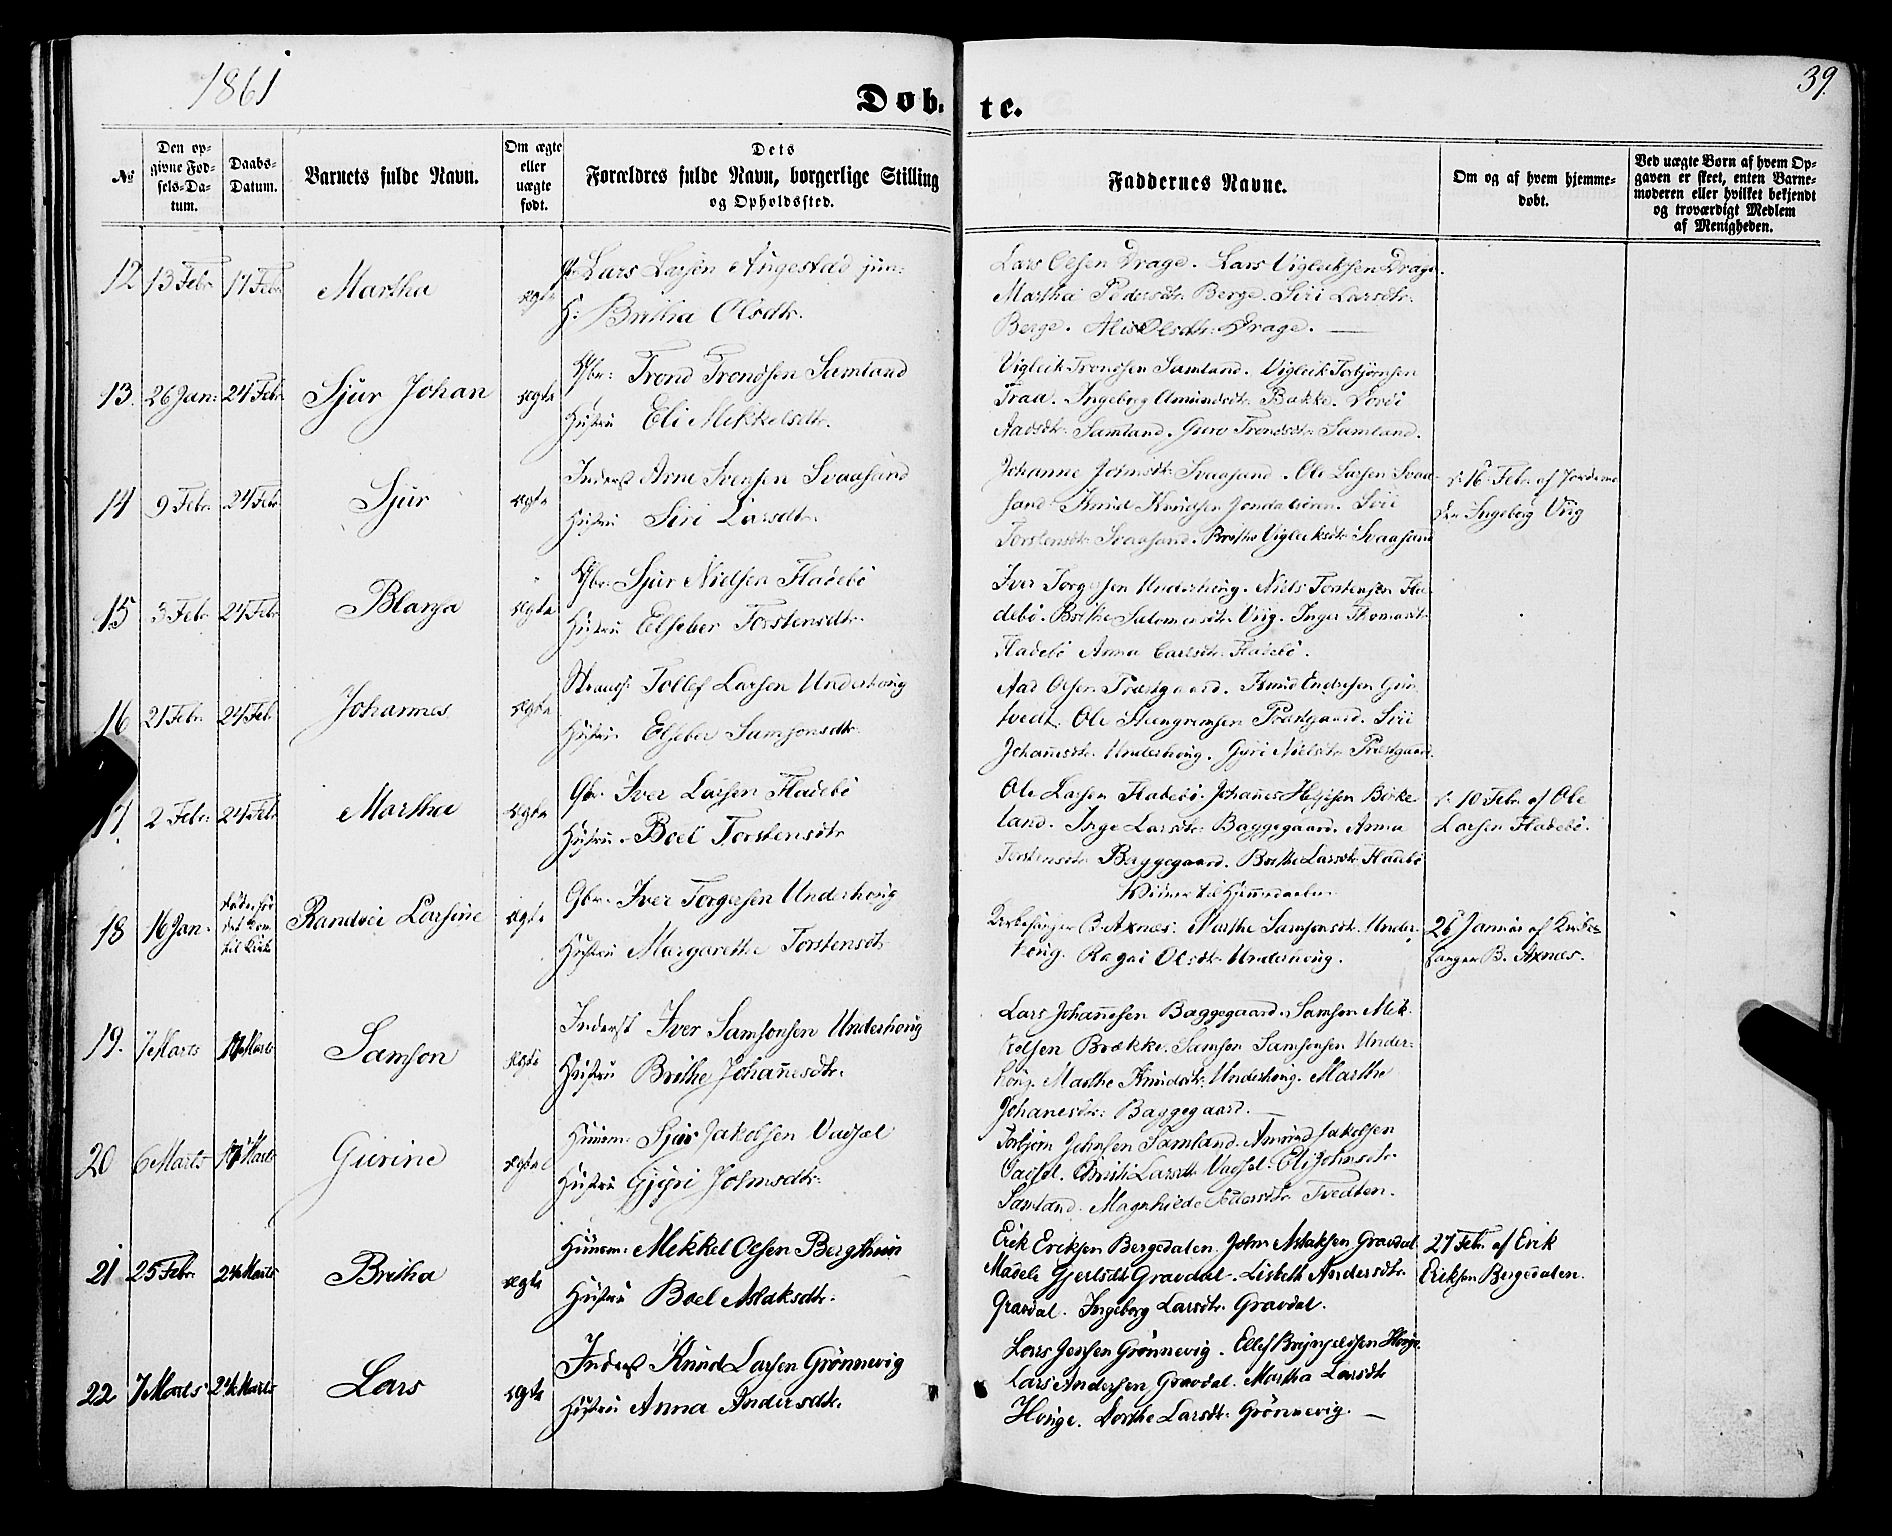 1861
Døb- te.
39.
№
Den op-
givne Fød-
sels-Da-
tum.
Daabs-
Datum.
Barnets fulde Navn.
Om ægte
eller
uægte
født.
Dets
Forældres fulde Navn, borgerlige Stilling
og Opholdssted.
Faddernes Navne.
Om og af hvem hjemme-
døbt.
Ved uægte Børn af hvem Op-
gaven er skeet, enten Barne-
moderen eller hvilket bekjendt
og troværdigt Medlem
af Menigheden.
12 13 Febr. 17 Febr. Martha ægte
Lars Larsen Augestad jun:
H: Britha Olsdtr.
Lars Olsen Drage. Lars Vigleiksen Drage.
Martha Pedersdtr. Berge. Siri Larsdtr.
Berge. Olsdtr. Drage. —
13. 26 Jan: 24 Febr. Sjur Johan ægte
Gbr: Trond Trondsen Samland
Hustru Eli Mikkelsdtr.
Vigleik Trondsen Samland. Vigleik Torbjørnsen
Traa. Ingeborg Amundsdtr. Bakke.
Samland. Guro Trondsdtr. Samland.
14 9 Febr. 24 Febr. Sjur ægte
Inderst Arne Svensen Svaasand
Hustru Siri Larsdtr.
Johanne Johnsdtr. Svaasand. Ole Larsen Svaa-
sand. Knud Knudsen Jondalsøren. Siri
Torstensdtr. Svaasand. Brithe Vigleiksdtr. Svaasand
16 Febr. af Jordemo-
Ingeborg Viig
15 3 Febr. 24 Febr. ægte
Gbr. Sjur Nielsen Fladebø
Hustru Elseber Torstensdtr.
Iver Torgersen Underhoug. Niels Torstensen Fla-
debø. Brithe Salomonsdtr. Viig. Inger Thomasdtr.
Fladebø Anna Larsdtr. Fladebø.
16 21 Febr. 24 Febr. Johannes ægte
Tollef Larsen Underhoug
Hustru Elseber Samsonsdtr.
Aad Olsen Præstgaard. Knud Endresen
tvedt. Ole Steingrimsen Præstgaard. Siri
Johannesdtr. Underhoug. Gyri Nielsdtr. Præstgaard.
17 2 Febr. 24 Febr. Martha ægte
Gbr. Iver Larsen Fladebø
Hustru. Boel Torstensdtr.
Ole Larsen Fladebø. Johannes Helgesen Birke-
land. Inge Larsdtr. Baggegaard. Anna
Torstensdtr. Baggegaard. Brithe Larsdtr. Fladebø
10 Febr. af Ole
Larsen Fladebø.
18 16 Jan. Randvei Larsine ægte
Gbr. Iver Torgersen Underhoug
Hustru Margarethe Torstensdtr.
Vidner til Hjemmedaaben
Kirkesanger B. Axnæs. Marthe Samsonsdtr. Under-
houg. Ragna Olsdtr. Underhoug.
26 Januar af Kirke-
sanger B. Axnæs.
19. 7 Marts 17 Marts Samson ægte
Inderst Iver Samsonsen Underhoug
Hustru Brithe Johannesdtr.
Lars Johannesen Baggegaard. Samson Mik-
kelsen Brække. Samson Samsonsen Under-
houg. Marthe Knudsdtr. Underhoug. Marthe
Johanesdtr. Baggegaard. —
20 6 Marts 17 Marts Gurine ægte
Huusm: Sjur Jakobsen Vassel
Hustru Gjyri Johnsdtr.
Torbjørn Johnsen Samland. Amund Jakobsen
Vassel. Kristi Larsdtr. Vassel. Eli Johnsdtr.
Samland. Magnhilde Pedersdtr. Tvedten.
21 25 Febr. 24 Marts Britha ægte
Huusm: Mikkel Olsen Bergthun
Hustru Boel Aslaksdtr.
Erik Eriksen Bergedalen. John Aslaksen Gravdal.
Madele Gjertsdtr. Gravdal. Lisbeth Andersdtr.
Gravdal. Ingeborg Larsdtr. Gravdal.
27 Febr. af Erik
Eriksen Bergedalen.
22 7 Marts 24 Marts Lars ægte
Inderst Knud Larsen Grønnevig
Hustru Anna Andersdtr.
Lars Jensen Grønnevig. Ellef Brynjelsen Houge.
Lars Andersen Gravdal. Martha Larsdtr.
Houge. Dorthe Larsdtr. Grønnevig. —